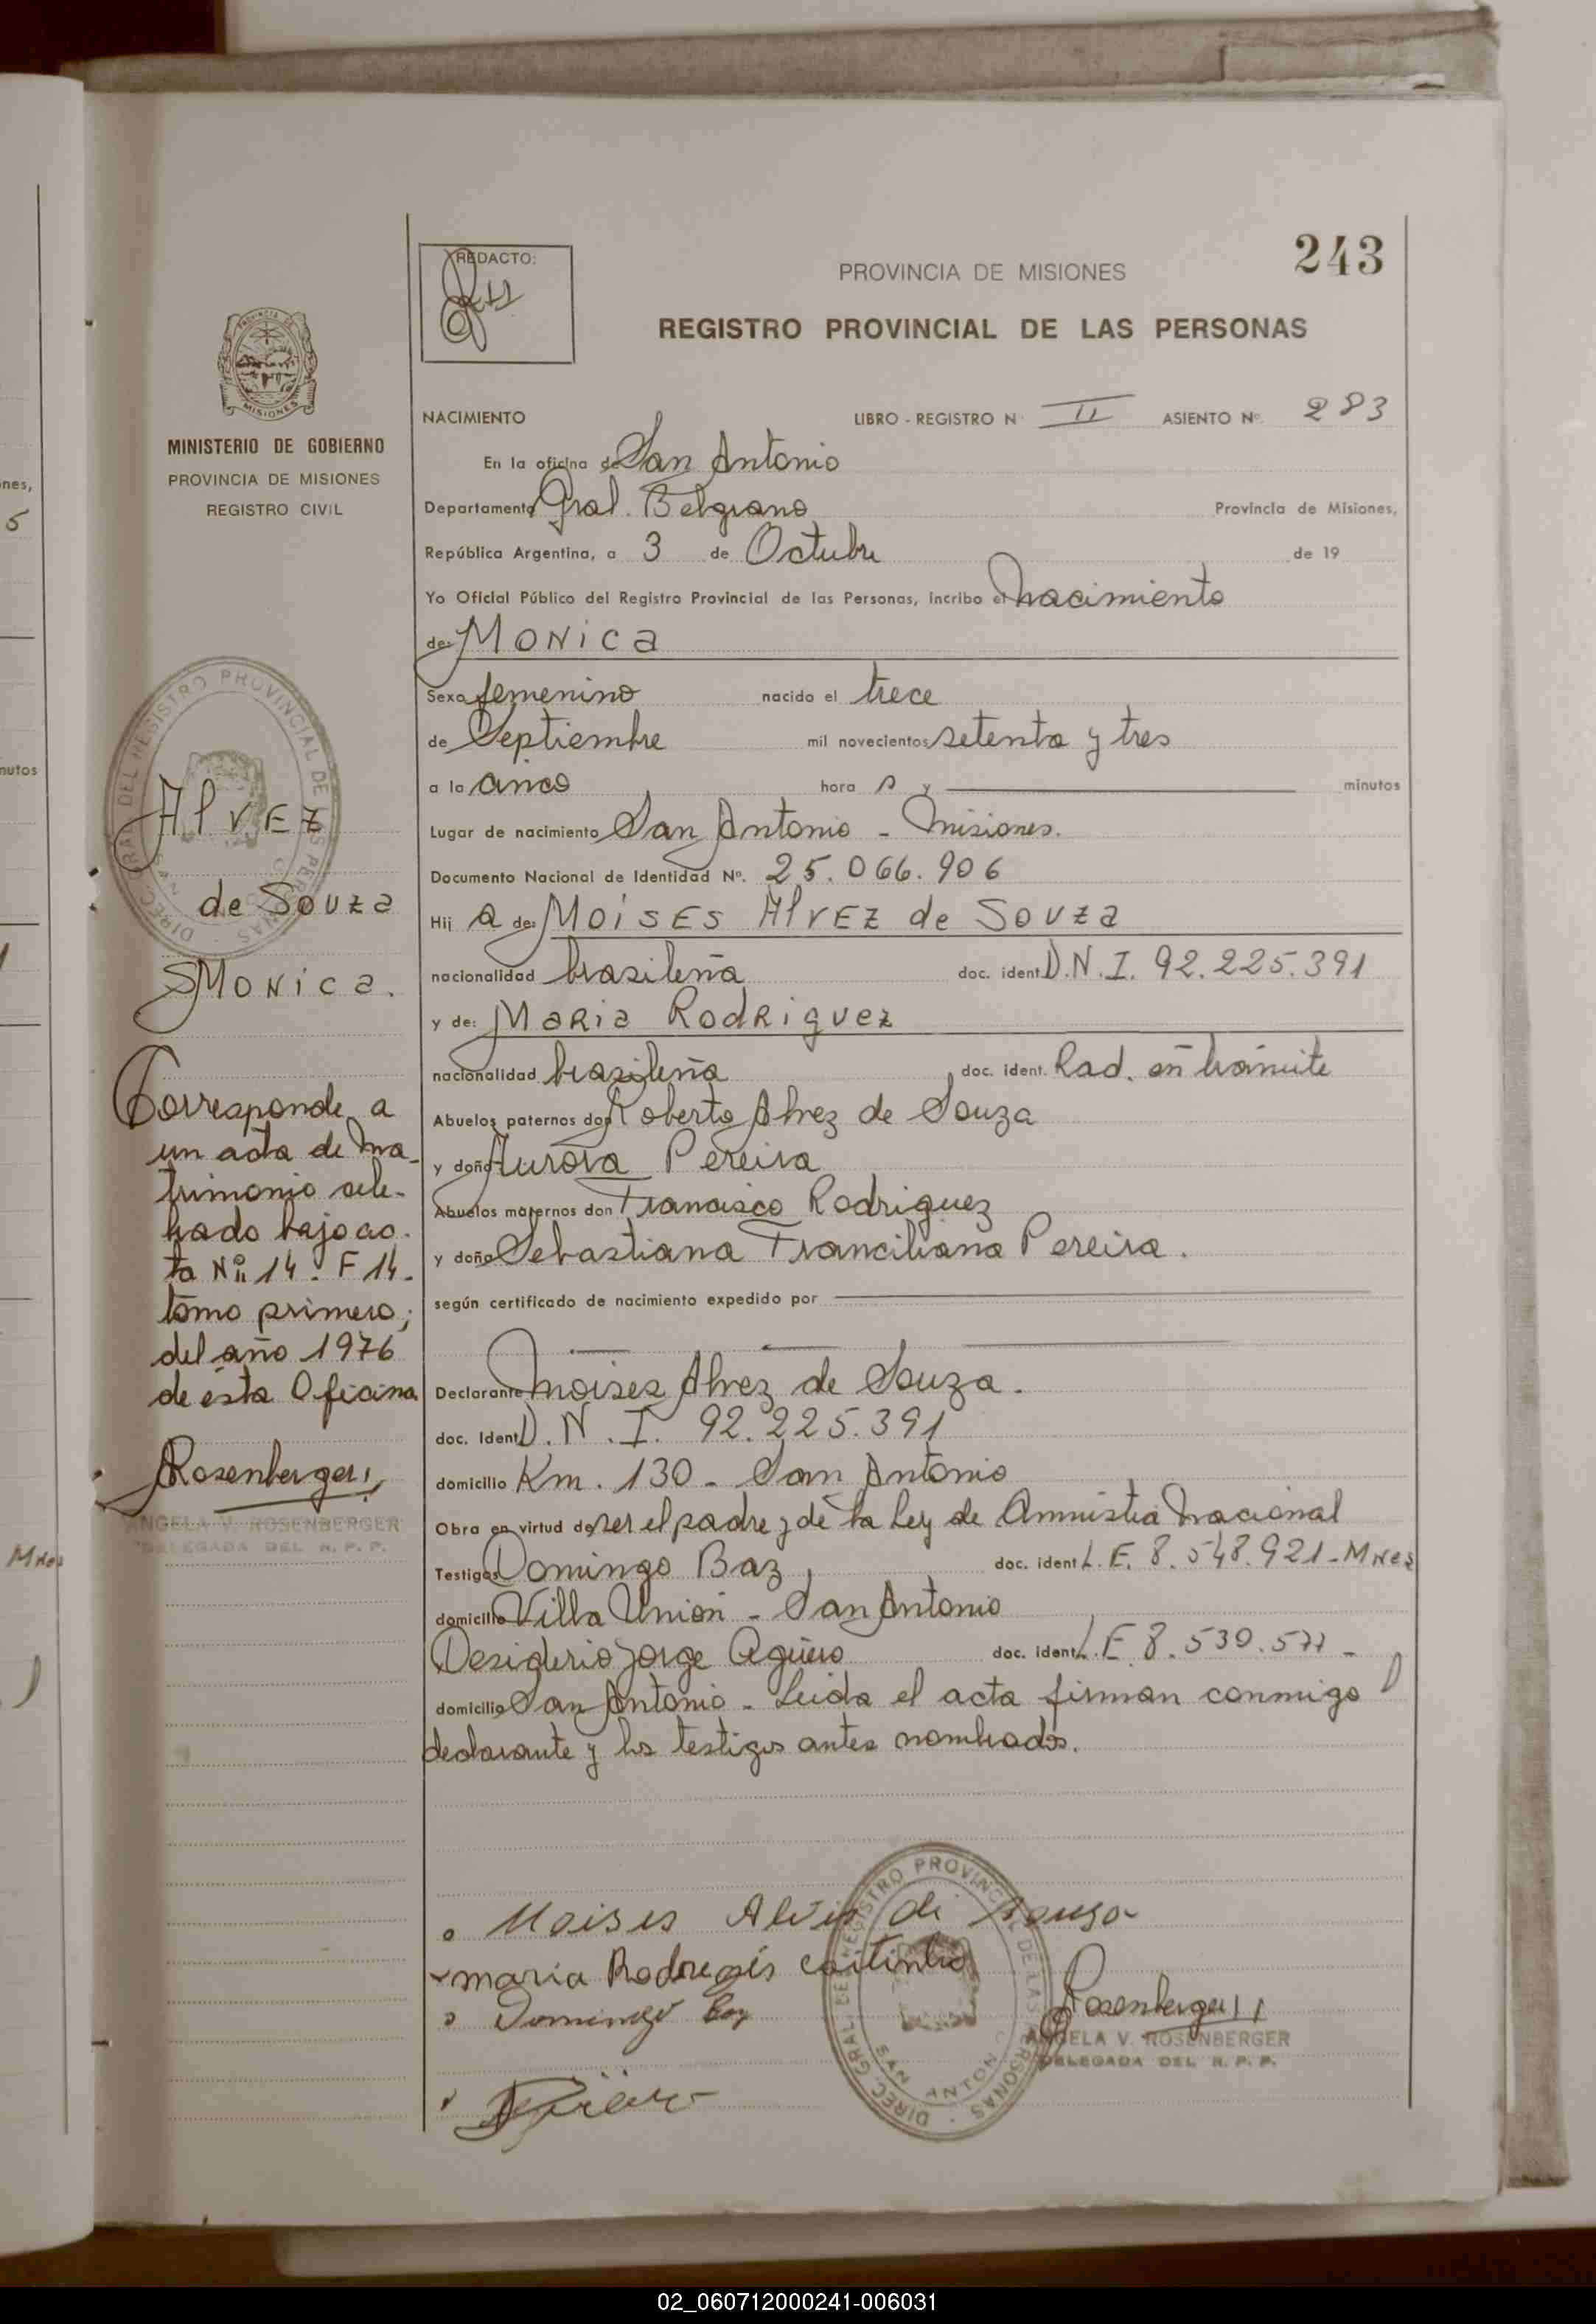 243
REDACTO:
PROVINCIA DE MISIONES
REGISTRO PROVINCIAL DE LAS PERSONAS
MISIONES
MINISTERIO DE GOBIERNO
PROVINCIA DE MISIONES
REGISTRO CIVIL
NACIMIENTO LIBRO - REGISTRO N II ASIENTO Nº. 283
En la oficina de San Antonio
Departamento Gral. Belgrano Provincia de Misiones,
República Argentina, a 3 de Octubre de 19
Yo Oficial Público del Registro Provincial de las Personas, incribo el nacimiento
de: MONica
Sexo femenino nacido el trece
de Septiembre mil novecientos setenta y tres
a la cinco hora s y minutos
Lugar de nacimiento San Antonio - Misiones.
Documento Nacional de Identidad Nº. 25.066.906
Hij a de: MOiSES AlvEZ de SOUZa
nacionalidad brasileña doc. ident. D.N.I. 92.225.391
y de: MaRia RodRiguez
nacionalidad brasileña doc. ident. Rad. en trámite
Abuelos paternos don Roberto Alvez de Souza
y doña Aurora Pereira
Abuelos maternos don Francisco Rodriguez
y doña Sebastiana Franciliana Pereira.
según certificado de nacimiento expedido por
Declarante Moises Alvez de Souza.
doc. Ident. D.N.I. 92.225.391
domicilio Km. 130 - San Antonio
Obra en virtud de ser el padre y de la Ley de Amnistia Nacional
Testigos Domingo Baz doc. ident L.E. 8.548.921 - Mnes
domicilio Villa Unión - San Antonio
Desiderio Jorge Agüero doc. ident. L.E 8.530.577 -
domicilio San Antonio - Leida el acta firman conmigo
declarante y los testigos antes nombrados.
AlvEZ
de Souza
MONica.
Corresponde a
un acta de Ma-
trimonio cele-
brado bajo ac-
ta Nº 14. F 14.
tomo primero;
del año 1976
de ésta Oficina
Rosenberger
ANGELA V. ROSENBERGER
DELEGADA DEL R. P. P.
Moises Alvis di Souso
maria Rodregis
Domingo Baz
Rosenberger
ANGELA V. ROSENBERGER
DELEGADA DEL R. P. P.
DIREC. GRAL. DEL REGISTRO PROVINCIAL DE LAS PERSONAS
SAN ANTONIO
nes,
5
nutos
Mnes
02_060712000241-006031